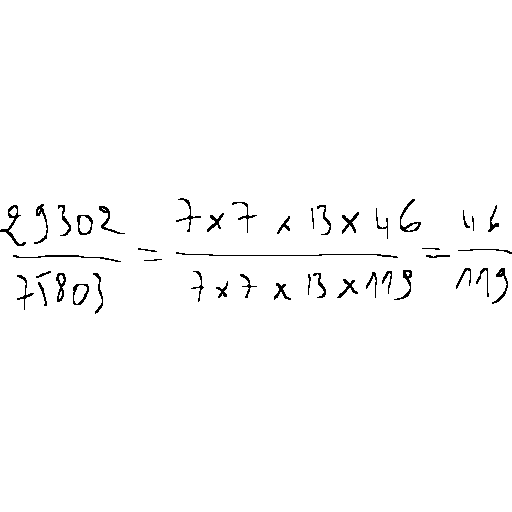 29302/75803 = 7x7x13x46/7x7x13x119 = 46/119